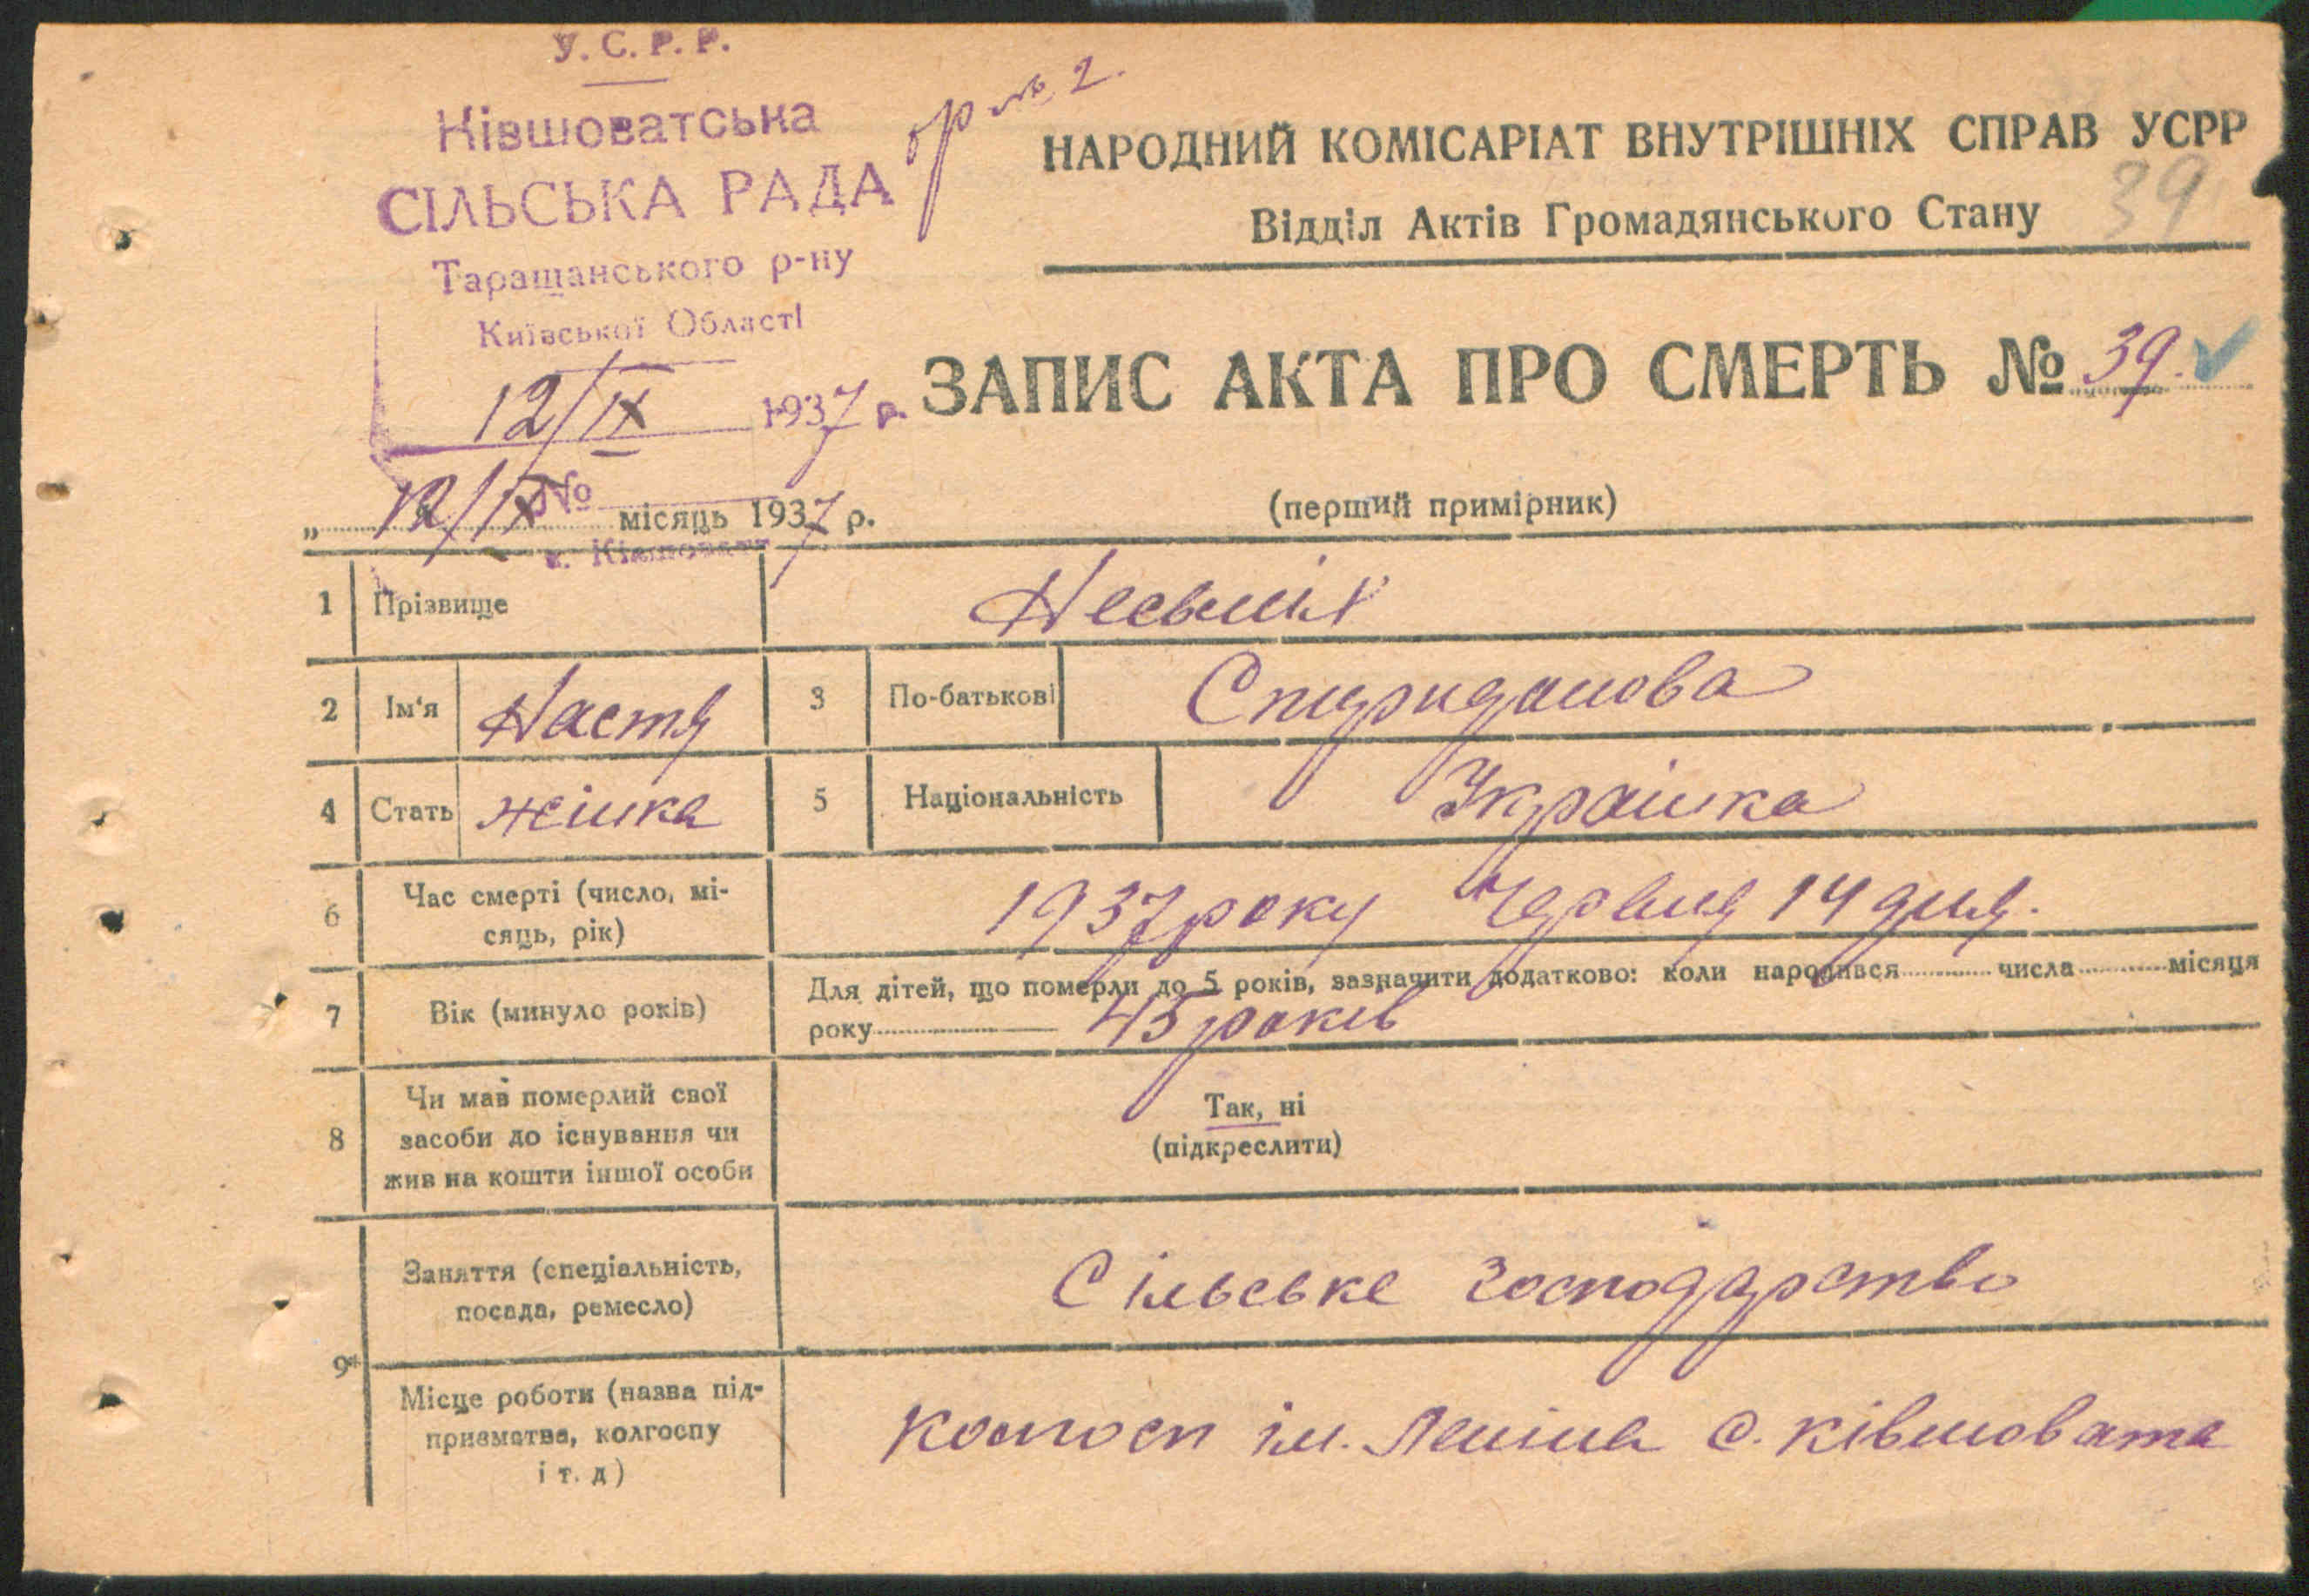 У. С. Р. Р.
Ківшоватська
СІЛЬСЬКА РАДА
Таращанського р-ну
Київської Області
12/IX 1937 р.
№
с. Ківшовата
ор № 2.
НАРОДНИЙ КОМІСАРІАТ ВНУТРІШНІХ СПРАВ УСРР
Відділ Актів Громадянського Стану
39
ЗАПИС АКТА ПРО СМЕРТЬ № 39.
„ 12/IX місяць 1937 р.
(перший примірник)
1 Прізвище
2 Ім'я Настя 3 По-батькові Спиридонова
4 Стать жінка 5 Національність Українка
6 Час смерті (число, мі-
сяць, рік)
1937 року Червня 14 дня.
7 Вік (минуло років)
Для дітей, що померли до 5 років, зазначити додатково: коли народився числа місяця
року 45 років
8 Чи мав померлий свої
засоби до існування чи
жив на кошти іншої особи
Так, ні
(підкреслити)
9
Заняття (спеціальність,
посада, ремесло)
Сільське господарство
Місце роботи (назва під-
приємства, колгоспу
і т. д)
колгосп ім. Леніна с. ківшовата